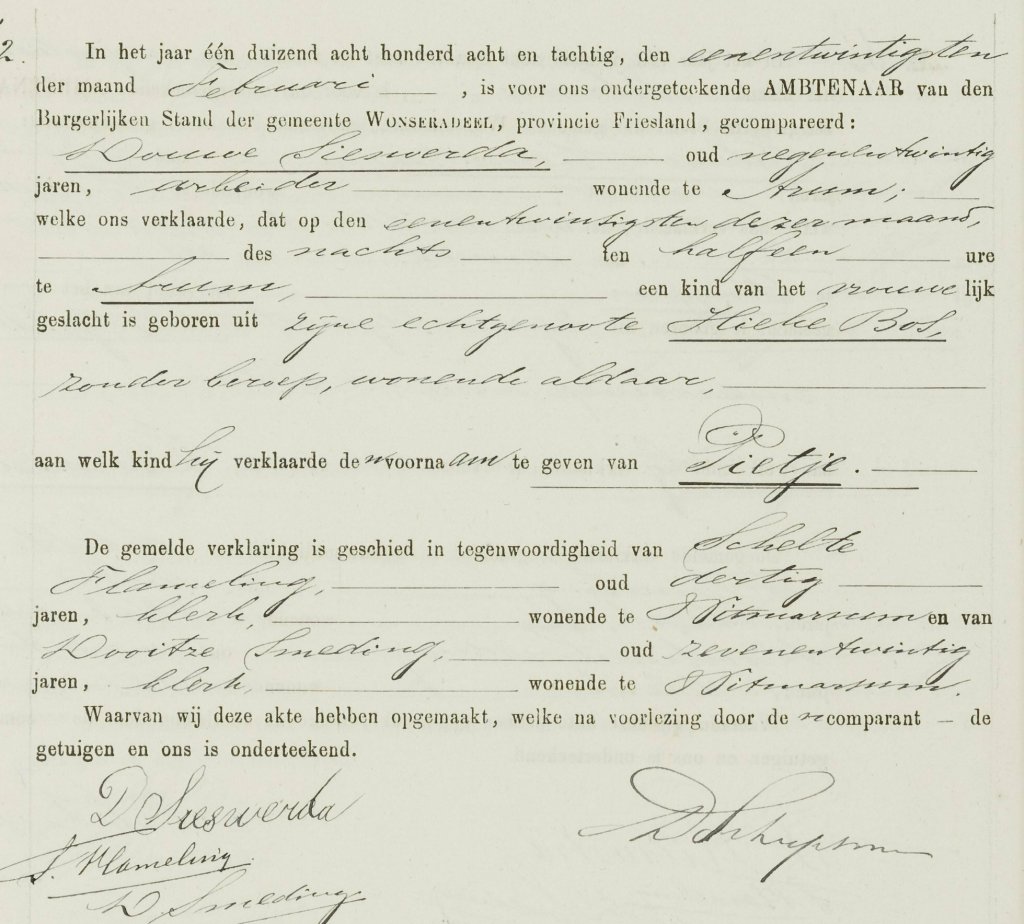 2.
In het jaar één duizend acht honderd acht en tachtig, den eenentwintigsten
der maand Februari, is voor ons ondergeteekende AMBTENAAR van den
Burgerlijken Stand der gemeente WONSERADEEL, provincie Friesland, gecompareerd:
Douwe Sieswerda, oud negenentwintig
jaren, arbeider wonende te Arum;
welke ons verklaarde, dat op den eenentwintigsten dezer maand,
des nachts ten halfeen ure
te Arum, een kind van het vrouwelijk
geslacht is geboren uit zijne echtgenoote Hieke Bos,
zonder beroep, wonende aldaar,
aan welk kind hij verklaarde den voornaam te geven van Pietje.
De gemelde verklaring is geschied in tegenwoordigheid van Schelte
Flameling, oud dertig
jaren, klerk, wonende te Witmarsum en van
Dooitze Smeding, oud zevenentwintig
jaren, klerk, wonende te Witmarsum.
Waarvan wij deze akte hebben opgemaakt, welke na voorlezing door den comparant – de
getuigen en ons is onderteekend.
D Sieswerda
S. Flameling
D Smeding